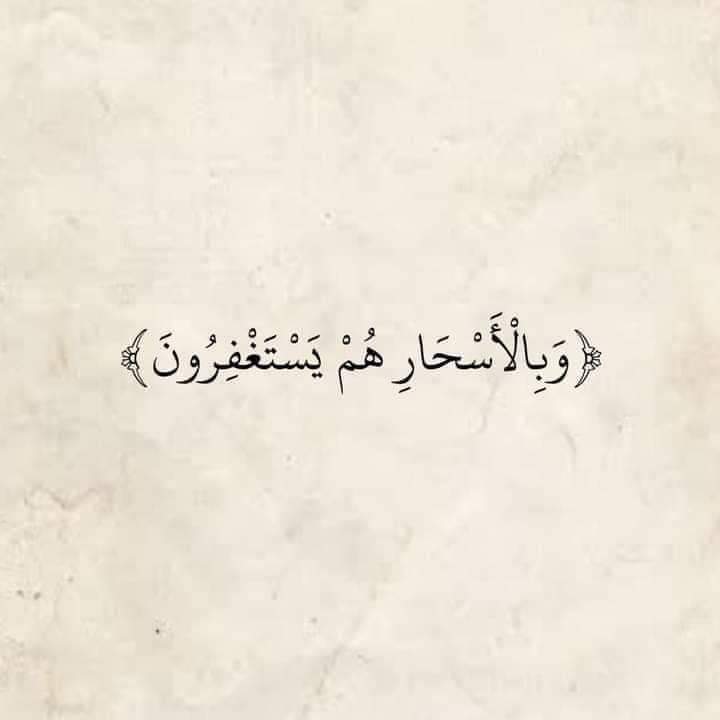 ﴿وَبِالْأَسْحَارِ هُمْ يَسْتَغْفِرُونَ﴾